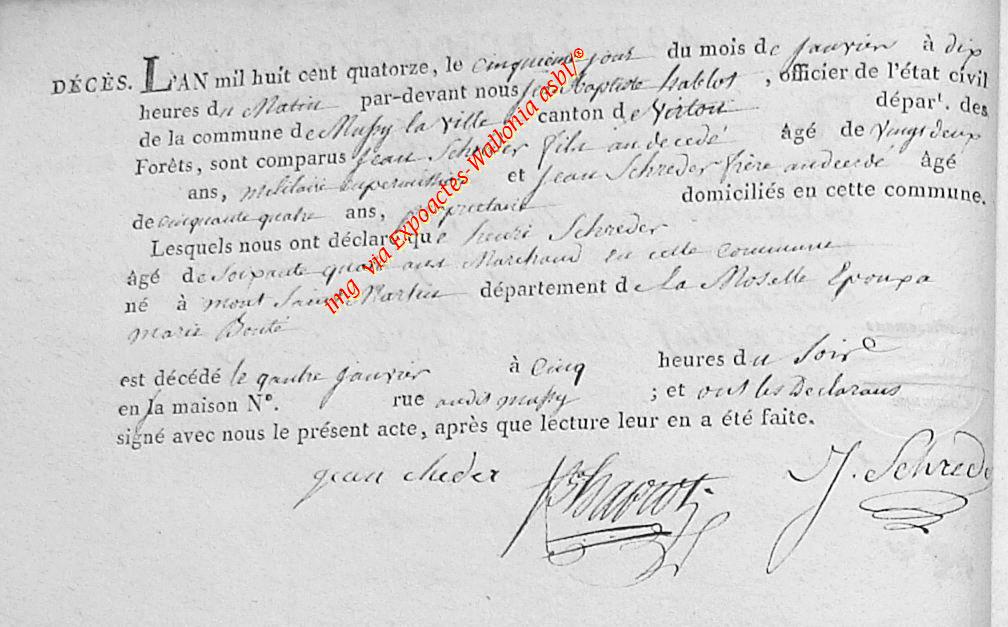 DÉCÈS. L'AN mil huit cent quatorze, le cinquieme jour du mois de Janvier à dix
heures du Matin par-devant nous Jean Baptiste hablot, officier de l'état civil
de la commune de Mussy la ville canton de Virton départ. des
Forêts, sont comparus Jean Schreder fils audecedé âgé de vingt deux
ans, militaire et Jean Schreder frère audecedé âgé
de cinquante quatre ans, proprietaire domiciliés en cette commune.
Lesquels nous ont déclaré que henri Schreder
âgé de soixante quatre ans Marchand en cette commune
né à mont Saint Martin département de La Moselle Epoux a
marie Bouté
est décédé le quatre janvier à Cinq heures du Soir
en la maison N°. rue audit mussy ; et ont les Declarans
signé avec nous le présent acte, après que lecture leur en a été faite.
jean cheder J. Schrede
img via Expoactes-Wallonia asbl ©